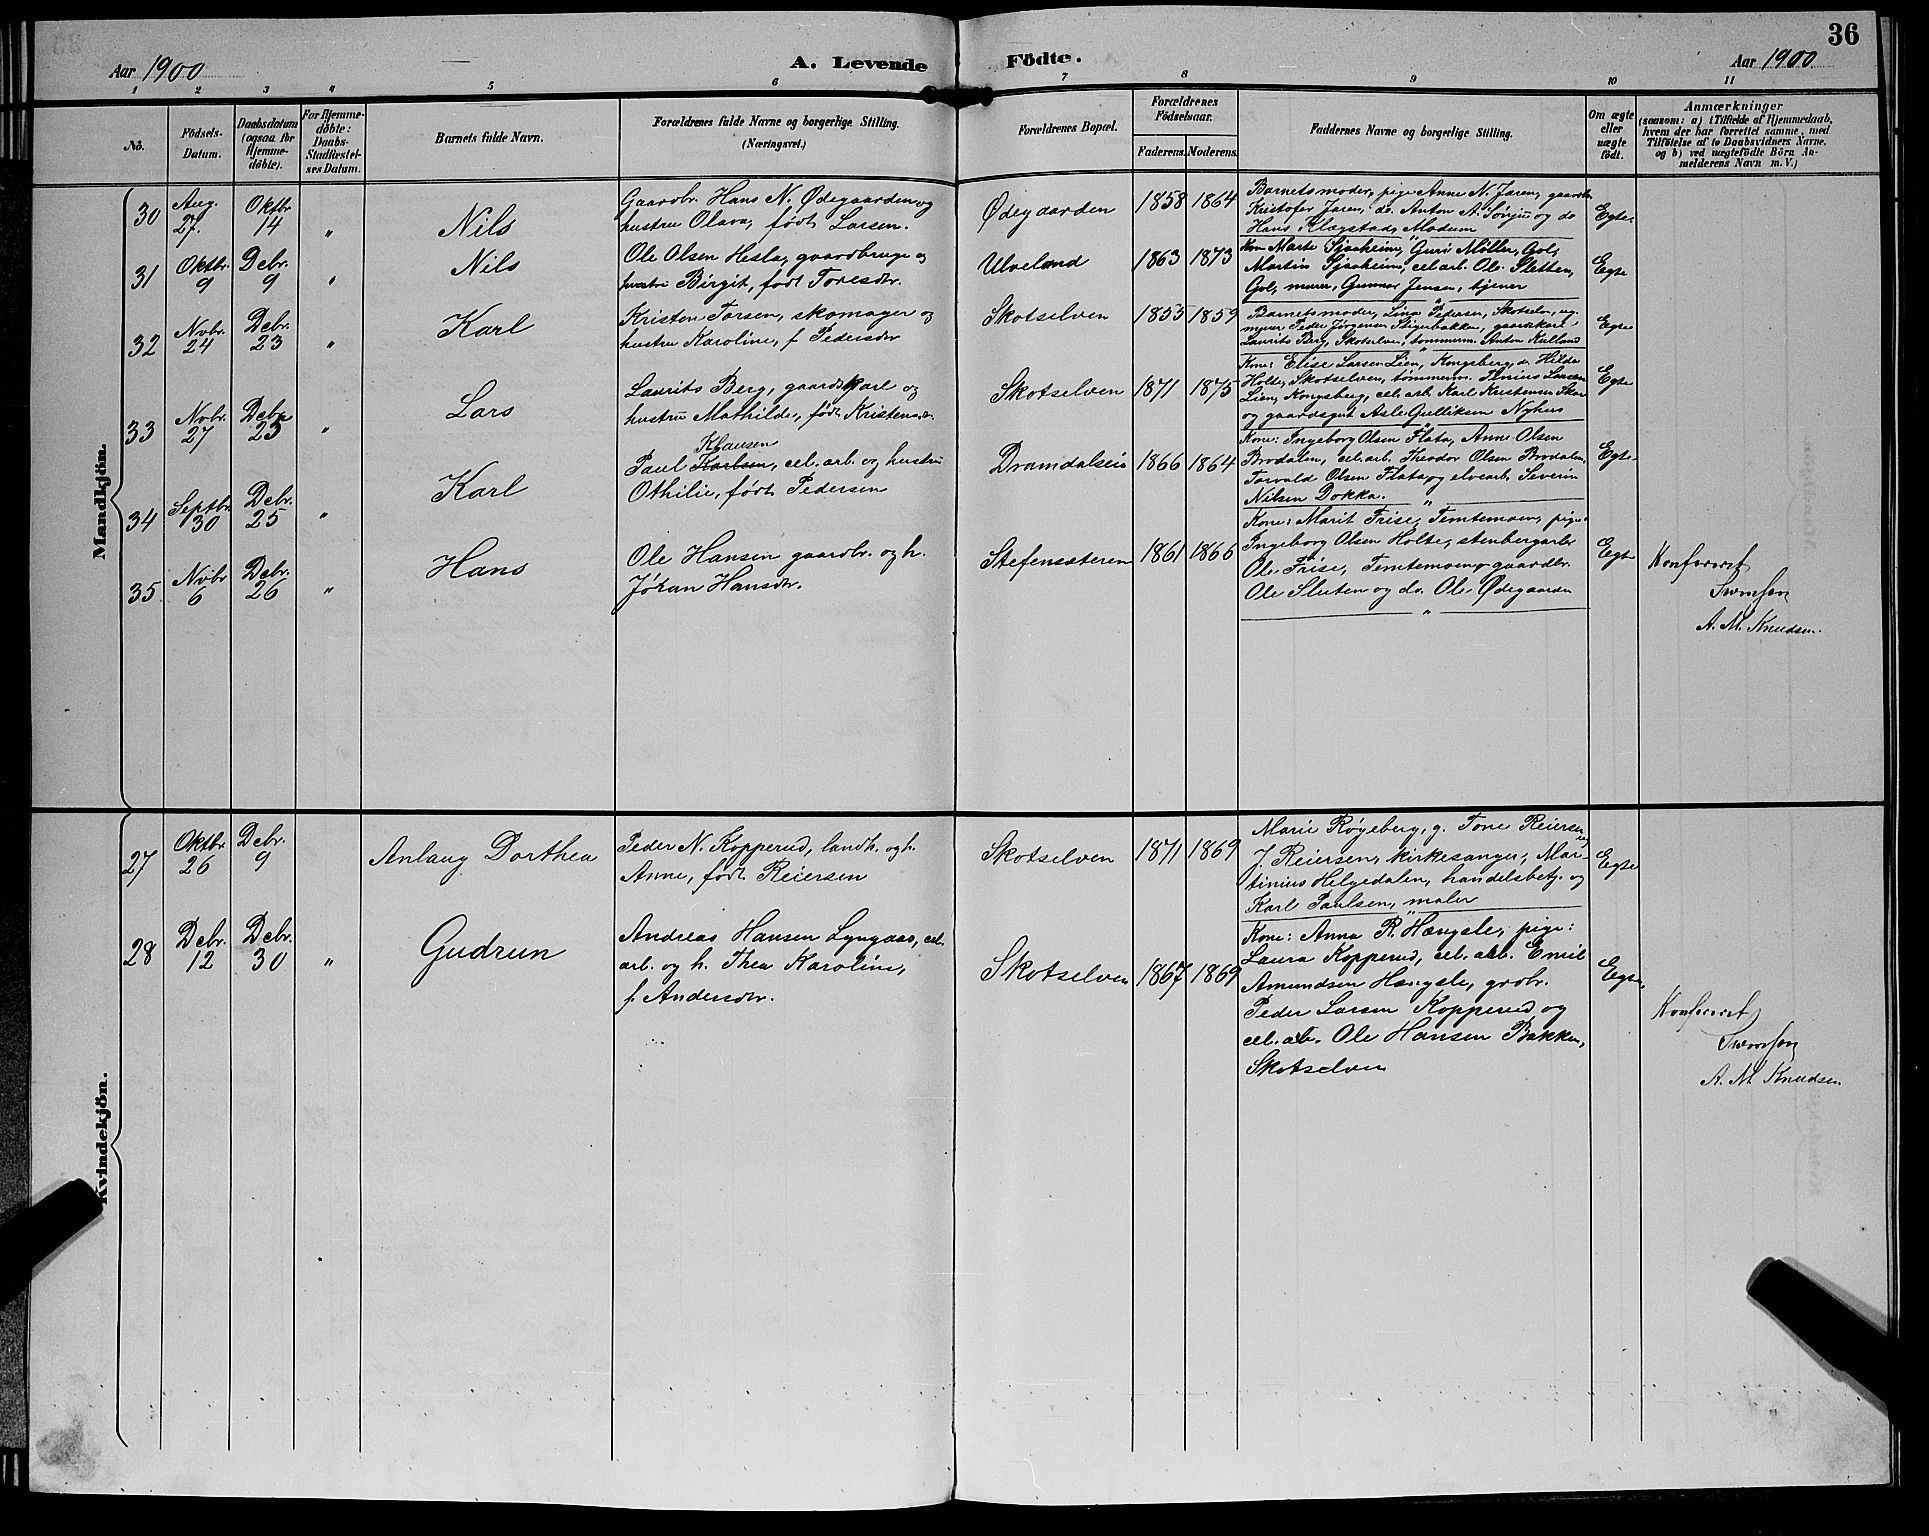 36
Aar 1900
A. Levende Födte.
Aar 1900.
1 2 3 4 5 6 7 8 9 10 11
No.
Födsels-
Datum.
Daabsdatum
(ogsaa for
Hjemme-
døbte).
For Hjemme-
døbte:
Daabs-
Stadfæstel-
ses Datum.
Barnets fulde Navn.
Forældrenes fulde Navne og borgerlige Stilling.
(Næringsvei.)
Forældrenes Bopæl.
Forældrenes
Födselsaar.
Faderens. Moderens.
Faddernes Navne og borgerlige Stilling.
Om ægte
eller
uægte
født.
Anmærkninger
(saasom: a) i Tilfælde af Hjemmedaab,
hvem der har forrettet samme, med
Tilføielse af to Daabsvidners Navne,
og b) ved uægtefødte Börn An-
melderens Navn m. V.)
Mandkjön.
30
Aug.
27.
Oktbr
14
"
Nils
Gaardbr. Hans N. Ødegaarden og
hustru Olava, født Larsen.
Ødegaarden
1858 1864
Barnets moder, pige Anne N. Jaren, gaardbr.
Kristofer Jaren, do. Anton A. Sørju og do
Hans Klagstad, Modum
Egte.
31
Oktbr.
9
Debr.
9
"
Nils
Ole Olsen Hesla, gaardbruger og
hustru Birgit, født Toresdtr.
Ulveland
1863 1873
Kon Marte Sjaaheim, Guri Møller, Gol,
Martin Sjaaheim, cel.arb. Ole Sletten,
Gol, murer, Gunnar Jensen, tjener
Egte
32
Novbr.
24
Debr.
23
"
Karl
Kristen Torsen, skomager og
hustru Karoline, f. Pedersdtr
Skotselven
1855 1859
Barnets moder, Lina Petersen, Skotselv, og
murer Peder Jörgensen Stigerbakken, gaardskarl
Laurits Berg, Skotselven, tømmerm. Anton Kulland
Egte
33
Novbr.
27
Debr
25
"
Lars
Laurits Berg, gaardskarl og
hustru Mathilde, født Kristensdtr.
Skotselven
1871 1875
Kone: Elise Larsen Lien, Kongsberg, do Hilda
Holte, Skotselven, tømmerm. Thinius Larsen
Lien, Kongsberg, cel. arb. Karl Kristensen Skar
og gaardsgut Asle Gulliksen Nyhus
Egte
34
Septbr.
30
Debr.
25
"
Karl
Klausen
Paul Karlsen, cel. arb. og hustru
Othilie, født Pedersen
Dramdalseie
1866 1864
Kone: Ingeborg Olsen Flata, Anne Olsen
Brodalen, cel. arb. Theodor Olsen Brodalen,
Torvald Olsen Flata og elvearb. Severin
Nilsen Dokka.
Egte
35
Novbr
6
Debr.
26
"
Hans
Ole Hansen gaardbr. og h.
Jöran Hansdtr.
Stefensæteren
1861 1866
Kone: Marit Frise, Temtemoen, pige:
Ingeborg Olsen Holte, stenbergarb.
Ole Frise, Temtemoen, gaardbr.
Ole Sluten og do. Ole Ødegaarden
Egte
Konfereret
A. M. Knudsen.
Kvindekjön.
27
Oktbr
26
Debr.
9
Anlaug Dorthea
Peder N. Kopperud, landh. og h.
Anne, født Reiersen
Skotselven
1871 1869
Marie Røgeberg, g. Tone Reiersen
og
J. Reiersen, kirkesanger, Mar-
tinius Helgedalen, handelsbetj. og
Karl Paulsen, maler
Egte
28
Debr.
12
Debr.
30
"
Gudrun
Andreas Hansen Lyngaas, cel.
arb. og h. Thea Karoline,
f. Andersdtr.
Skotselven
1867 1869
Kone: Anna R. Hængsle, pige:
Laura Kopperud, cel. arb. Emil
Amundsen Hængsle, grdbr.
Peder Larsen Kopperud og
cel. arb. Ole Hansen Bakken,
Skotselven
Egte,
Konfereret
A. M. Knudsen